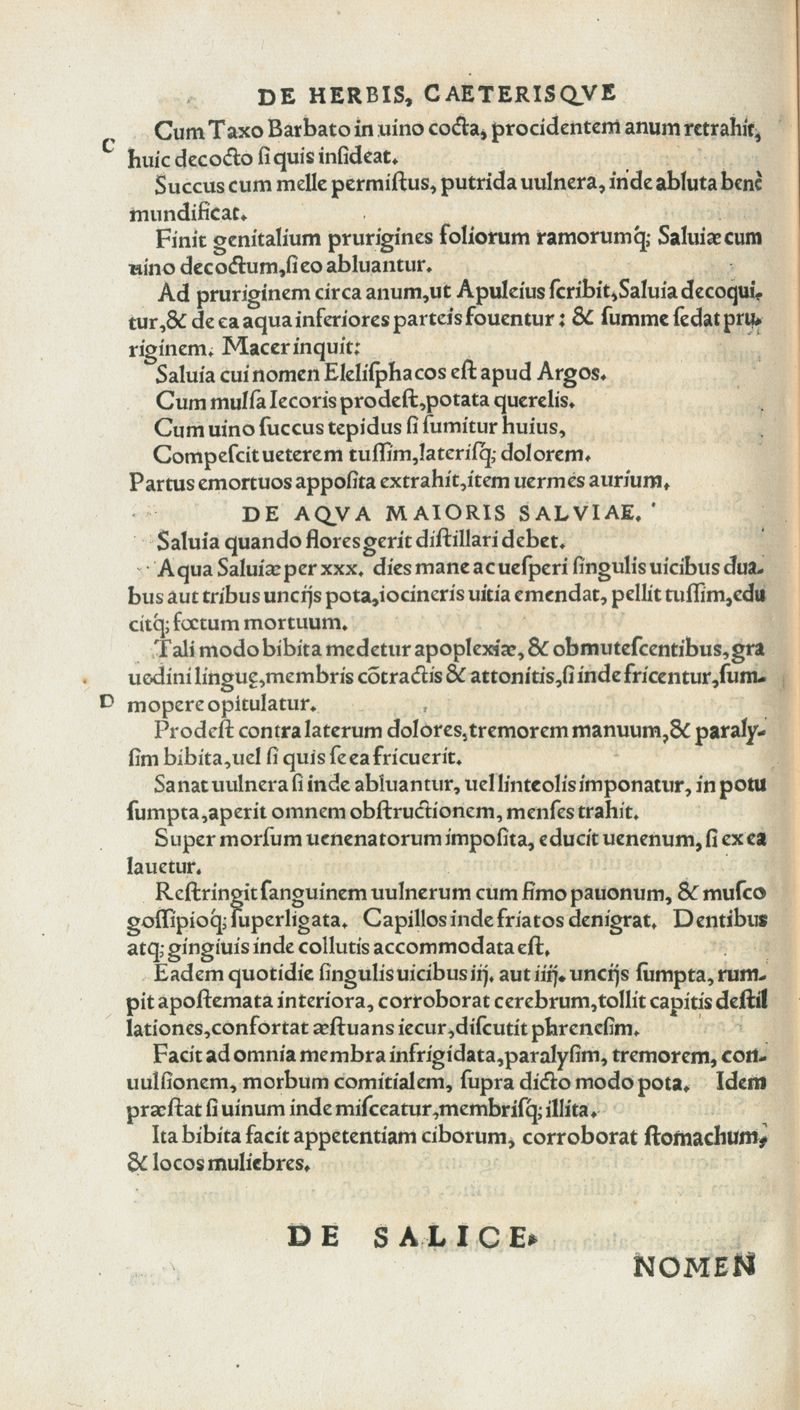 DE HERBIS, CAETERISQVE
Cum Taxo Barbato in uino cocta, procidentem anum retrahit,
C
huic decocto ſi quis inſideat.
Succus cum melle permiſtus, putrida uulnera, inde abluta benè
mundificat.
Finit genitalium prurigines foliorum ramorumq́; Saluiæ cum
uino decoctum, ſi eo abluantur.
Ad pruriginem circa anum, ut Apuleius ſcribit, Saluia decoqui-
tur, & de ea aqua inferiores parteis fouentur: & ſumme ſedat pru-
riginem. Macer inquit:
Saluia cui nomen Eleliſphacos eſt apud Argos.
Cum mulſa Iecoris prodeſt, potata querelis.
Cum uino ſuccus tepidus ſi ſumitur huius,
Compeſcit ueterem tuſſim, lateriſq; dolorem.
Partus emortuos appoſita extrahit, item uermes aurium.
DE AQVA MAIORIS SALVIAE.
Saluia quando flores gerit diſtillari debet.
Aqua Saluiæ per xxx. dies mane ac ueſperi ſingulis uicibus dua-
bus aut tribus uncijs pota, iocineris uitia emendat, pellit tuſſim, edu
citq́; fœtum mortuum.
Tali modo bibita medetur apoplexiæ, & obmuteſcentibus, gra
uedini linguę, membris cõtractis & attonitis, ſi inde fricentur, ſum-
D mopere opitulatur.
Prodeſt contra laterum dolores, tremorem manuum, & paraly-
ſim bibita, uel ſi quis ſe ea fricuerit.
Sanat uulnera ſi inde abluantur, uel linteolis imponatur, in potu
ſumpta, aperit omnem obſtructionem, menſes trahit.
Super morſum uenenatorum impoſita, educit uenenum, ſi ex ea
lauetur.
Reſtringit ſanguinem uulnerum cum fimo pauonum, & muſco
goſſipioq́; ſuperligata. Capillos inde friatos denigrat. Dentibus
atq; gingiuis inde collutis accommodata eſt.
Eadem quotidie ſingulis uicibus iij. aut iiij. uncijs ſumpta, rum-
pit apoſtemata interiora, corroborat cerebrum, tollit capitis deſtil
lationes, confortat æſtuans iecur, diſcutit phreneſim.
Facit ad omnia membra infrigidata, paralyſim, tremorem, con-
uulſionem, morbum comitialem, ſupra dicto modo pota. Idem
præſtat ſi uinum inde miſceatur, membriſq; illita.
Ita bibita facit appetentiam ciborum, corroborat ſtomachum,
& locos muliebres.
DE SALICE.
NOMEN